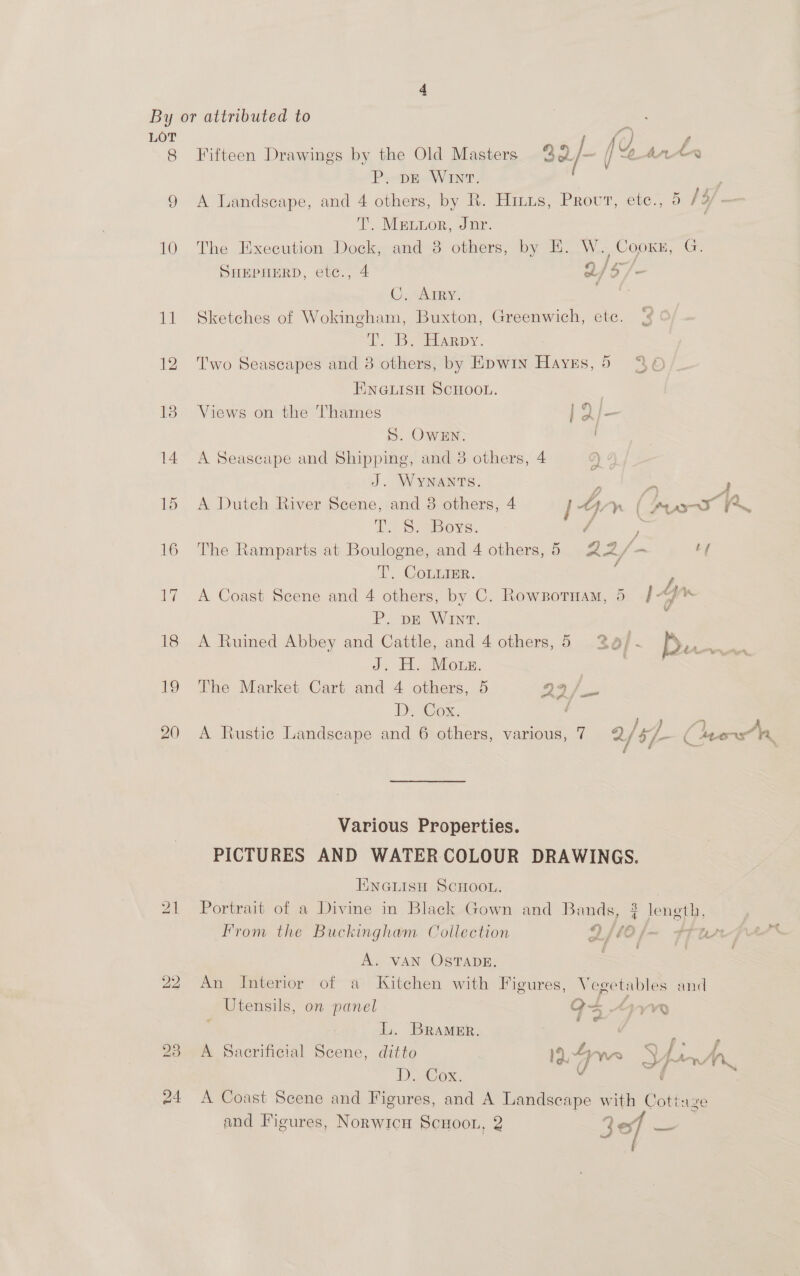 4
By or attributed to
LOT
8 Fifteen Drawings by the Old Masters 32/-
P. DE WINT.
9 A Landscape, and 4 others, by R. HILLS, PROUT, etc., 5
T. MELLOR, Jnr.
10 The Execution Dock, and 3 others, by E. W. COOKE, G.
SHEPHERD, etc., 4 2/5/-
C. AIRY.
11 Sketches of Wokingham, Buxton, Greenwich, etc.
T. B. HARDY.
12 Two Seascapes and 3 others, by EDWIN HAYES, 5 30/-
ENGLISH SCHOOL.
13 Views on the Thames 12/-
S. OWEN.
14 A Seascape and Shipping, and 3 others, 4
J. WYNANTS.
15 A Dutch River Scene, and 3 others, 4 1 gn
T. S. BOYS.
16 The Ramparts at Boulogne, and 4 others, 5 22/- "
T. COLLIER.
17 A Coast Scene and 4 others, by C. ROWBOTHAM, 5 1 gn
P. DE WINT.
18 A Ruined Abbey and Cattle, and 4 others, 5 30/-
J. H. MOLE.
19 The Market Cart and 4 others, 5 22/-
D. COX.
20 A Rustic Landscape and 6 others, various, 7 2/5/-
Various Properties.
PICTURES AND WATER COLOUR DRAWINGS.
ENGLISH SCHOOL.
21 Portrait of a Divine in Black Gown and Bands, ¾ length,
From the Buckingham Collection 2/10/-
A. VAN OSTADE.
22 An Interior of a Kitchen with Figures, Vegetables and
Utensils, on panel
L. BRAMER.
23 A Sacrificial Scene, ditto 12 gns
D. COX.
24 A Coast Scene and Figures, and A Landscape with Cottage
and Figures, NORWICH SCHOOL, 2